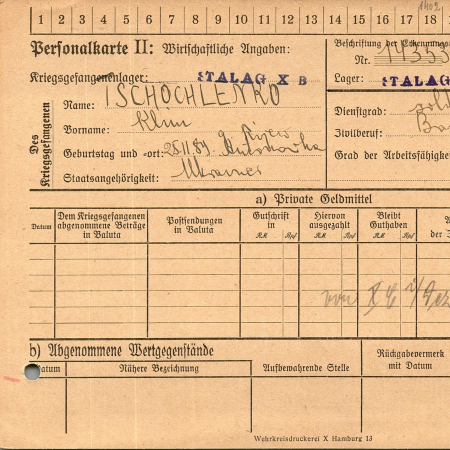 1402
1 2 3 4 5 6 7 8 9 10 11 12 13 14 15 16 17 18
Personalkarte II: Wirtschaftliche Angaben:
Beschriftung der Erkennungs
Nr. 14353
Kriegsgefangenenlager: STALAG X B
Lager: STALAG
Des Kriegsgefangenen
Name: TSCHOCHLENKO
Vorname: Klim
Dienstgrad: sold
Zivilberuf: Ba
Geburtstag und -ort: 25.11.89. Kijew
Grad der Arbeitsfähigkei
Staatsangehörigkeit: Ukrainer
a) Private Geldmittel
Datum
Dem Kriegsgefangenen abgenommene Beträge in Valuta
Postsendungen in Valuta
Gutschrift in
RM Rpf
Hiervon ausgezahlt
RM Rpf
Bleibt Guthaben
RM Rpf
A
der J
von X C
b) Abgenommene Wertgegenstände
Datum
Nähere Bezeichnung
Aufbewahrende Stelle
Rückgabevermerk mit Datum
Wehrkreisdruckerei X Hamburg 13